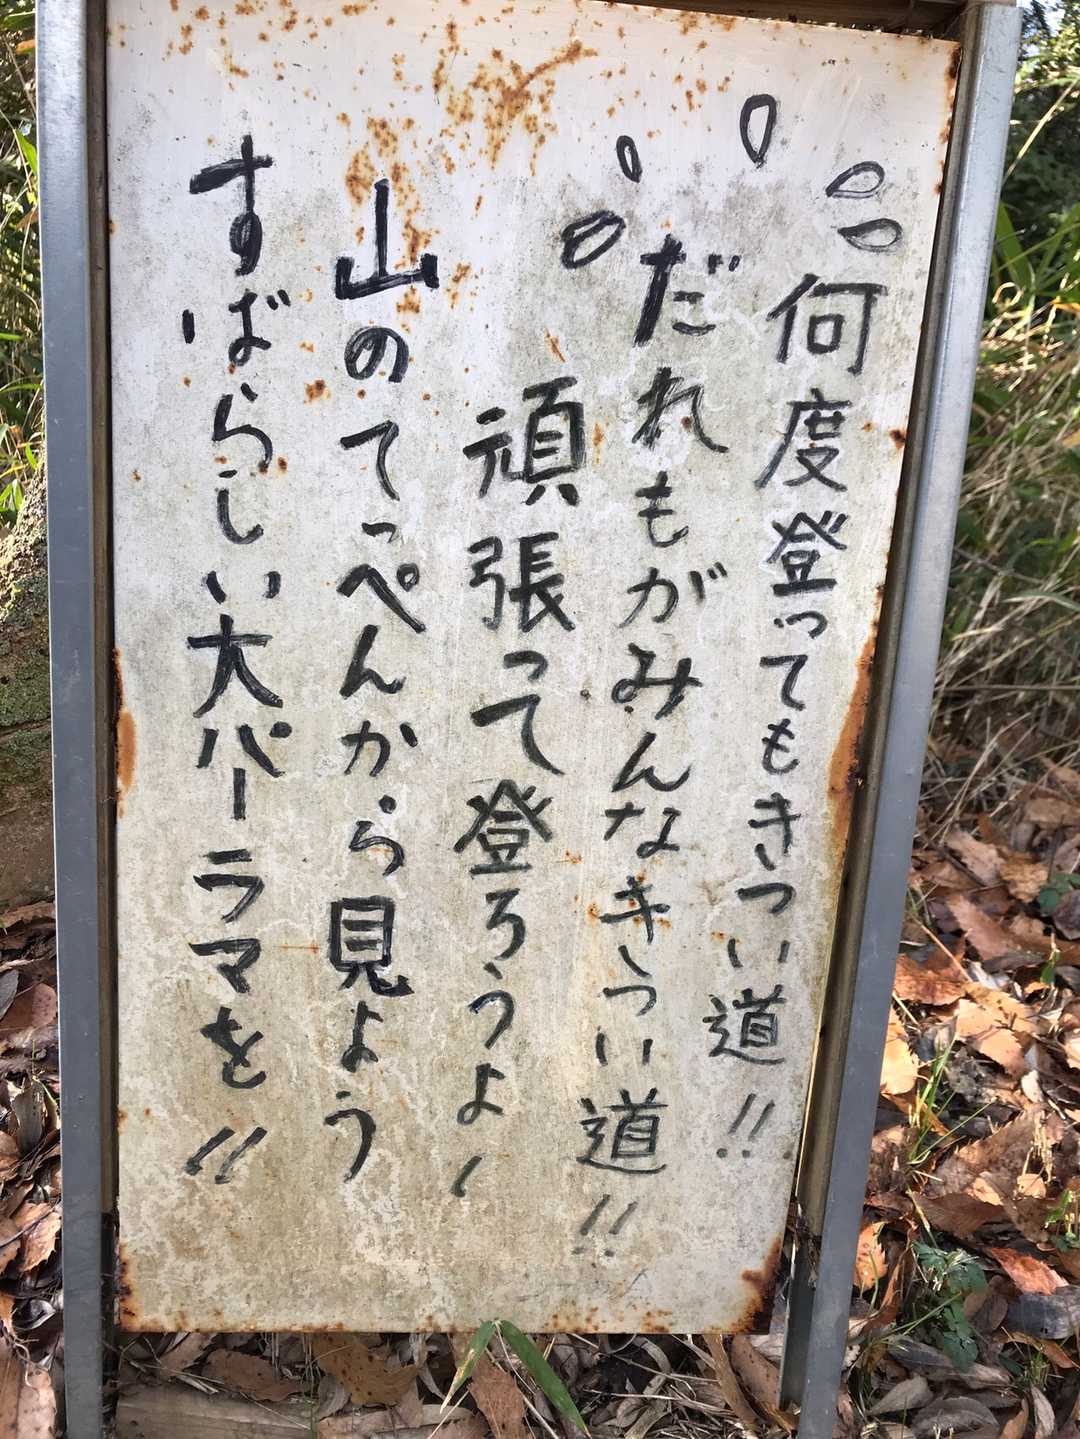 何度登ってもきつい道!!
だれもがみんなきつい道!!
頑張って登ろうよ!
山のてっぺんから見よう
すばらしい大パーラマを!!